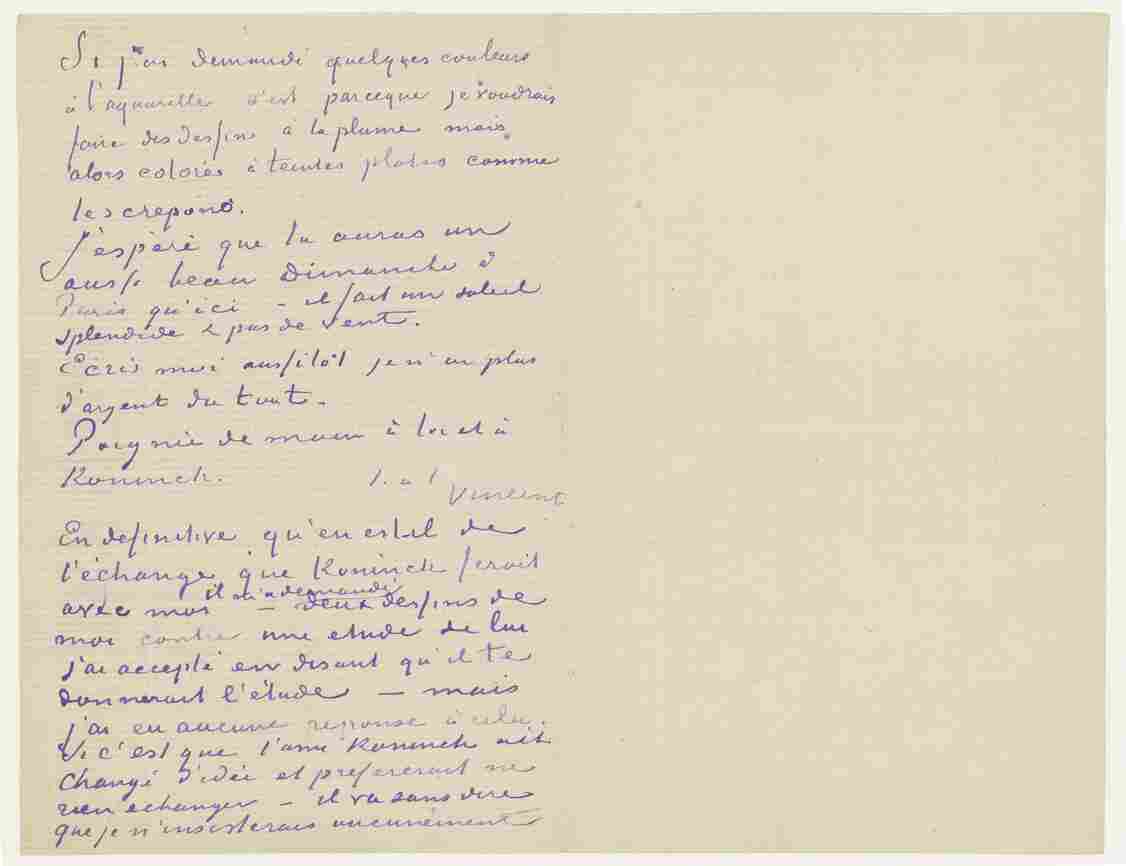 Si j'ai demandé quelques couleurs
à l'aquarelle c'est parceque je voudrais
faire des dessins à la plume mais
alors colorés à teintes plates comme
les crepons.
J'espère que tu auras un
aussi beau Dimanche à
Paris qu'ici – il fait un soleil
splendide & pas de vent.
Écris moi aussitôt je n'ai plus
d'argent du tout –
Poignée de main à toi et à
Koninck.
t. à t.
Vincent
En definitive qu'en est il de
l'échange que Koninck ferait
il m'a demandé
avec moi – deux dessins de
moi contre une etude de lui
j'ai accepté en disant qu'il te
donnerait l'étude – mais
j'ai eu aucune reponse à cela.
Si c'est que l'ami Koninck ait
changé d'idée et prefererait ne
rien echanger – il va sans dire
que je n'insisterais aucunément